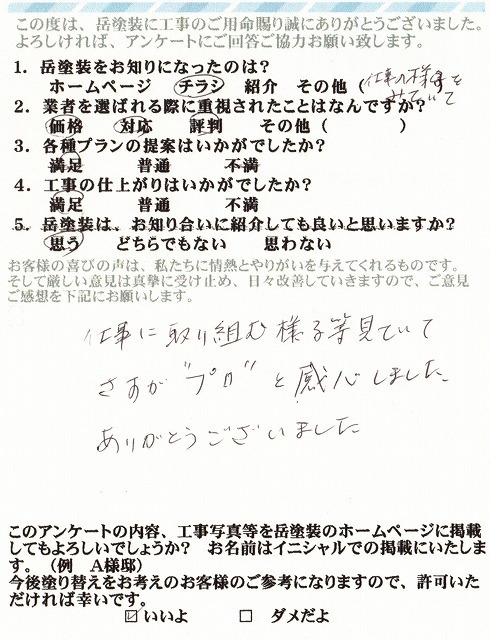 この度は、岳塗装に工事のご用命賜り誠にありがとうございました。
よろしければ、アンケートにご回答ご協力お願い致します。
1．岳塗装をお知りになったのは？
ホームページ　チラシ　紹介　その他（仕事の様子を
みていて
2．業者を選ばれる際に重視されたことはなんですか？
価格　対応　評判　その他（　　　）
3．各種プランの提案はいかがでしたか？
満足　普通　不満
4．工事の仕上がりはいかがでしたか？
満足　普通　不満
5．岳塗装は、お知り合いに紹介しても良いと思いますか？
思う　どちらでもない　思わない
お客様の喜びの声は、私たちに情熱とやりがいを与えてくれるものです。
そして厳しい意見は真摯に受け止め、日々改善していきますので、ご意見
ご感想を下記にお願いします。
仕事に取り組む様子等見ていて
さすが"プロ"と感心しました
ありがとうございました
このアンケートの内容、工事写真等を岳塗装のホームページに掲載
してもよろしいでしょうか？　お名前はイニシャルでの掲載にいたしま
す。（例　A様邸）
今後塗り替えをお考えのお客様のご参考になりますので、許可いた
だければ幸いです。
☑ いいよ　□ ダメだよ